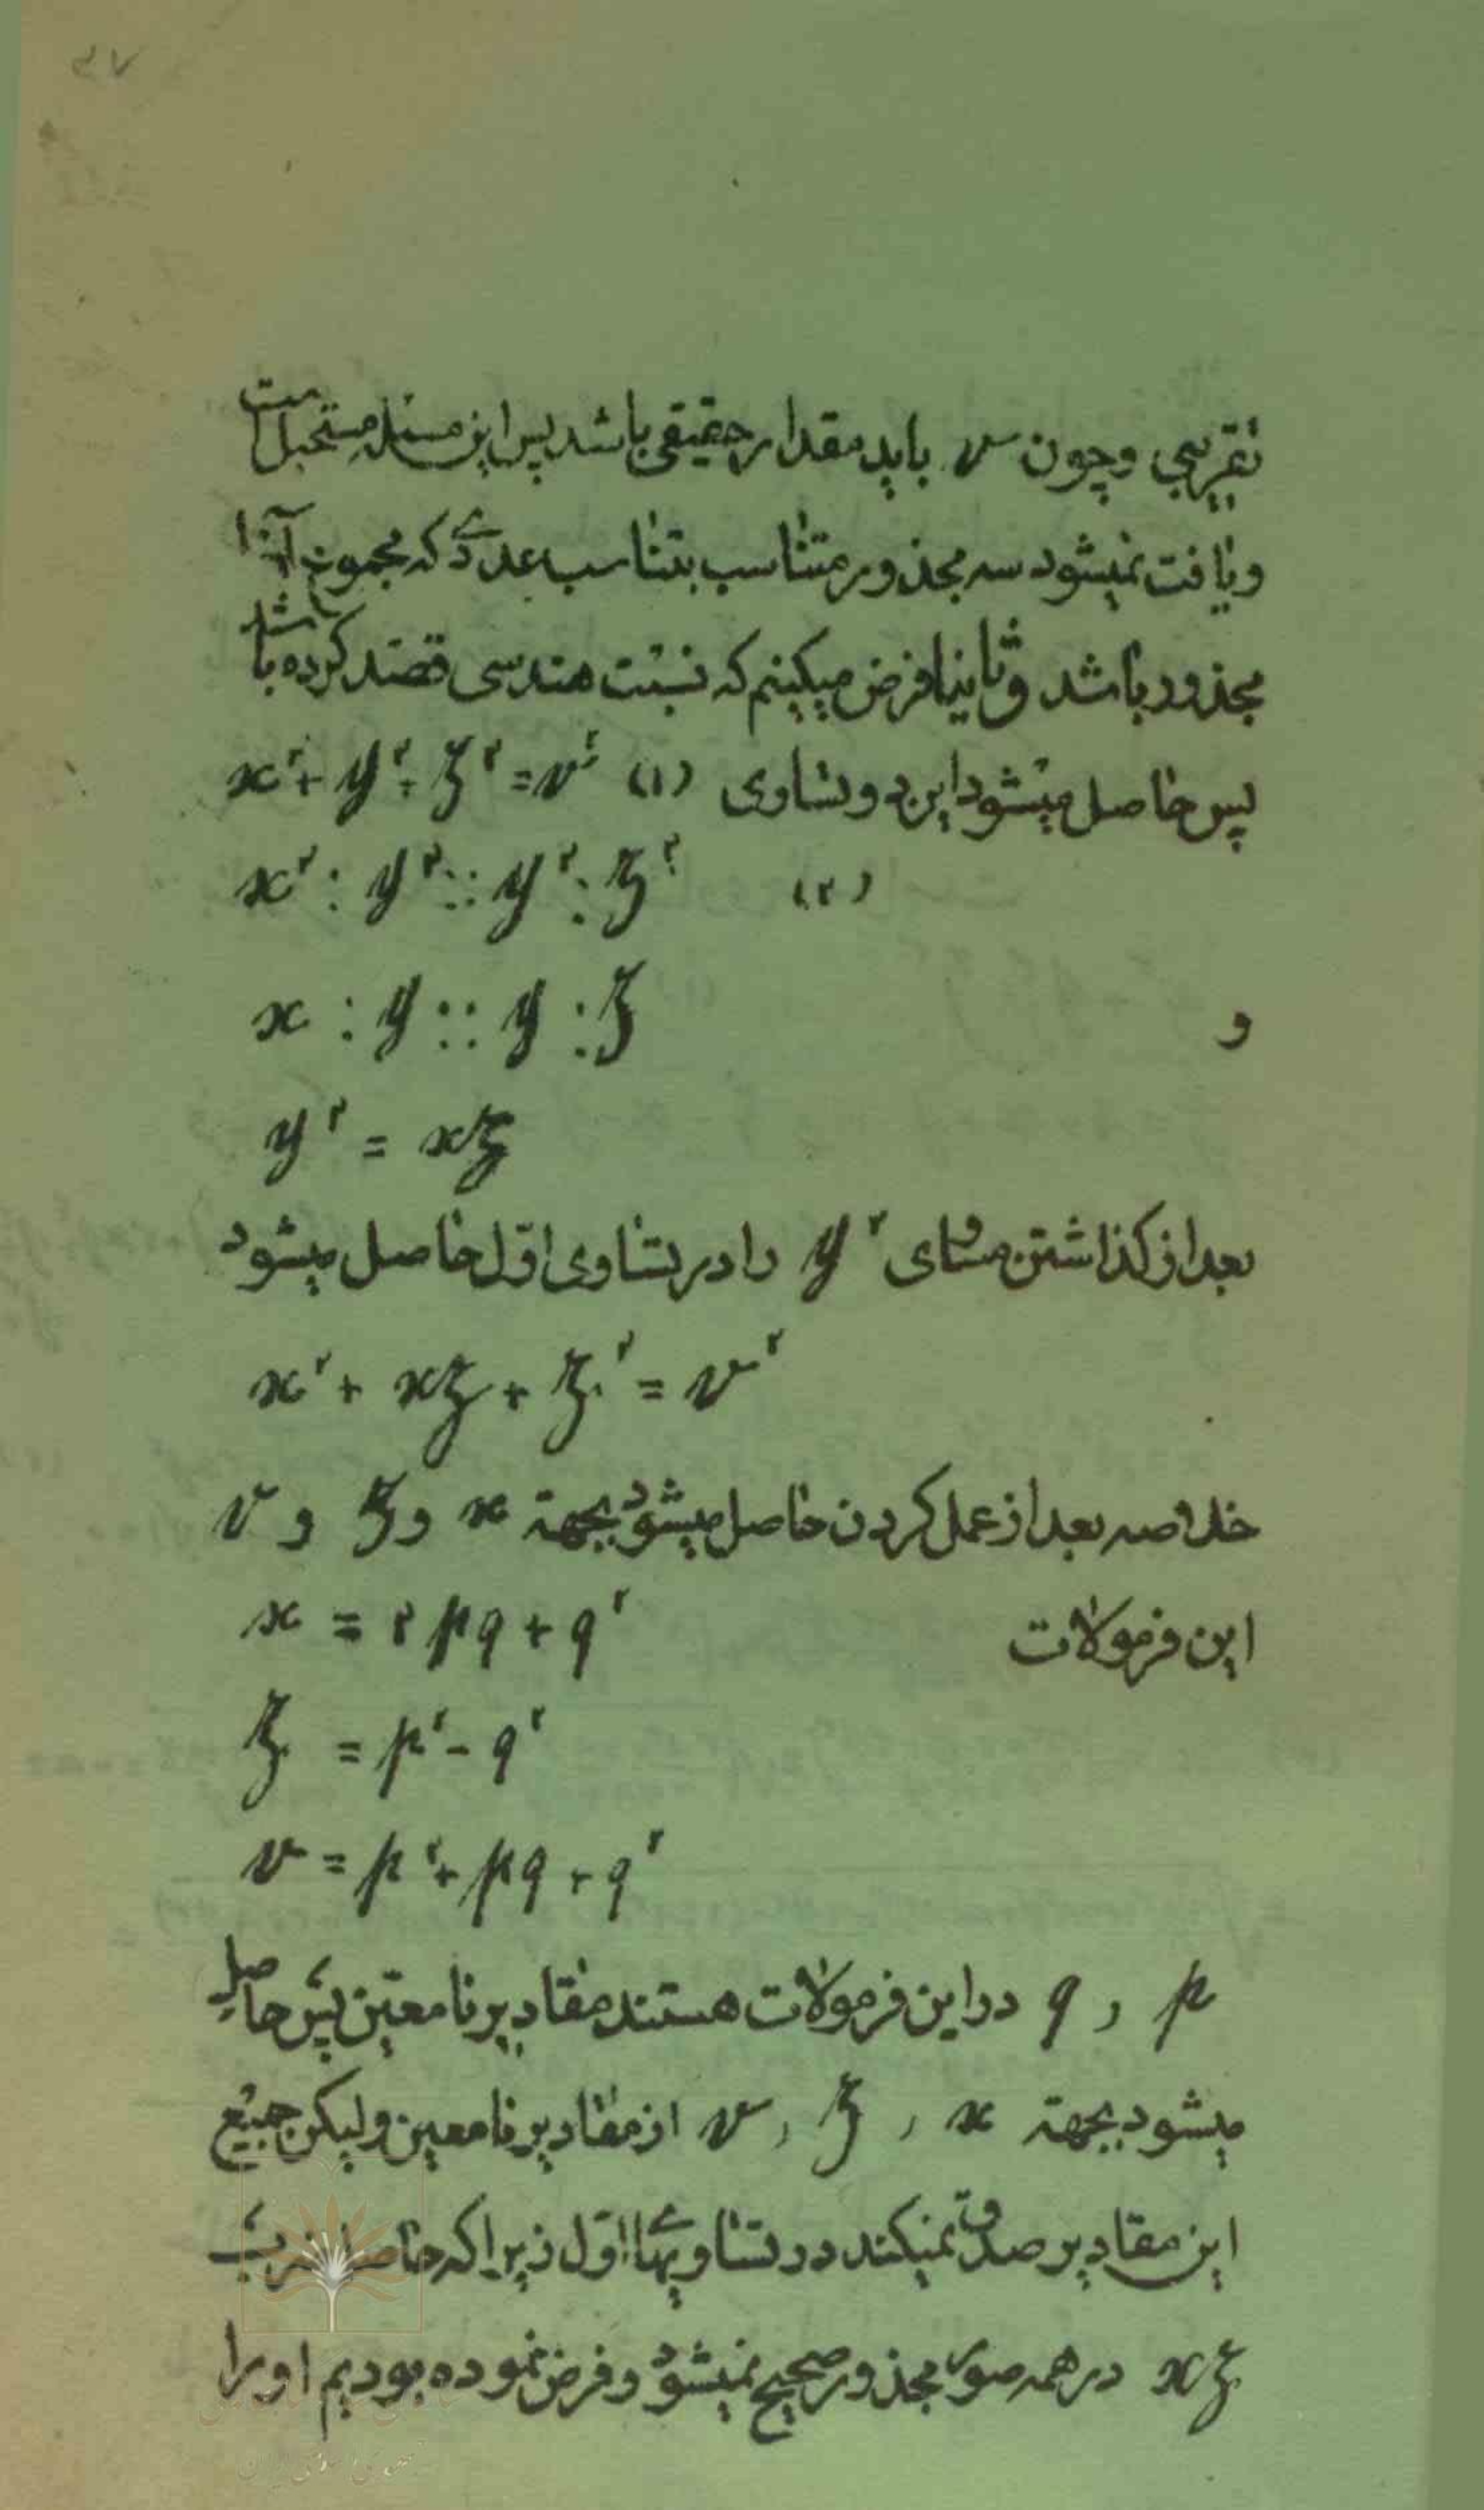 ۴۷
تقریبی و چون v باید مقدار حقیقی باشد پس این مسئله مستحیل است
و یافت نمیشود سه مجذور متناسب بتناسب عددی که مجموع آنها
مجذور باشد و ثانیا فرض میکینم که نسبت هندسی قصد کرده باشد
پس حاصل میشود این دو تساوی (۱) x²+y²+z²=v²
(۲) x²:y²::y²:z²
و x:y::y:z
y² = xz
بعد از کذاشتن مساوی y² را در تساوی اوّل حاصل میشود
x² + xz + z² = v²
خلاصه بعد از عمل کردن حاصل میشود بجهة x و z و v
این فرمولات x = ۲pq + q²
z = p² - q²
v = p² + pq + q²
p و q در این فرمولات هستند مقادیر نامعیّن پس حاصل
میشود بجهة x و z و v از مقادیر نامعین ولیکن جمیع
این مقادیر صدق نمیکند در تساویهای اوّل زیرا که حاصل ضرب
xz در همه صور مجذور صحیح نمیشود و فرض نموده بودیم او را